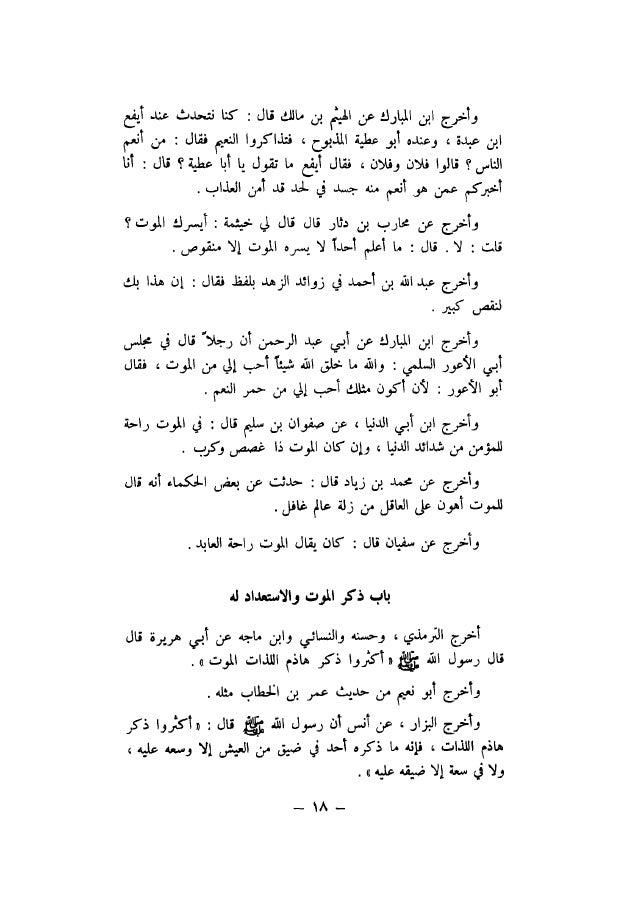 وأخرج ابن المبارك عن الهيثم بن مالك قال : كنا نتحدث عند أيفع
ابن عبدة ، وعنده أبو عطية المذبوح ، فتذاكروا النعيم فقال : من أنعم
الناس ؟ قالوا فلان وفلان ، فقال أيفع ما تقول يا أبا عطية ؟ قال : أنا
أخبركم عمن هو أنعم منه جسد في لحد قد أمن العذاب .
وأخرج عن محارب بن دثار قال قال لي خيثمة : أيسرك الموت ؟
قلت : لا . قال : ما أعلم أحداً لا يسره الموت إلا منقوص .
وأخرج عبد الله بن أحمد في زوائد الزهد بلفظ فقال : إن هذا بك
لنقص كبير .
وأخرج ابن المبارك عن أبي عبد الرحمن أن رجلاً قال في مجلس
أبي الأعور السلمي : والله ما خلق الله شيئاً أحب إلي من الموت ، فقال
أبو الأعور : لأن أكون مثلك أحب إلي من حمر النعم .
وأخرج ابن أبي الدنيا ، عن صفوان بن سليم قال : في الموت راحة
للمؤمن من شدائد الدنيا ، وإن كان الموت ذا غصص وكرب .
وأخرج عن محمد بن زياد قال : حدثت عن بعض الحكماء أنه قال
للموت أهون على العاقل من زلة عالم غافل .
وأخرج عن سفيان قال : كان يقال الموت راحة العابد .
باب ذكر الموت والاستعداد له
أخرج الترمذي ، وحسنه والنسائي وابن ماجه عن أبي هريرة قال
قال رسول الله ﷺ « أكثروا ذكر هاذم اللذات الموت » .
وأخرج أبو نعيم من حديث عمر بن الخطاب مثله .
وأخرج البزار ، عن أنس أن رسول الله ﷺ قال : « أكثروا ذكر
هاذم اللذات ، فإنه ما ذكره أحد في ضيق من العيش إلا وسعه عليه ،
ولا في سعة إلا ضيقه عليه » .
– ١٨ –